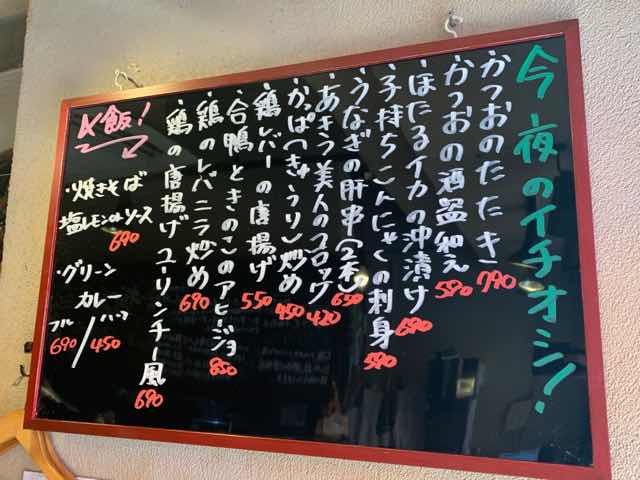 今夜のイチオシ!
・かつおのたたき 790
・かつおの酒盗和え 590
・ほたるイカの沖漬け 690
・子持ちこんにゃくの刺身 590
・うなぎの肝串(2本) 650
・あきつ美人のコロッケ 420
・かっぱ(きゅうり)炒め 450
・鶏レバーの唐揚げ 550
・合鴨ときのこのアヒージョ 850
・鶏のレバニラ炒め 690
・鶏の唐揚げユーリンチー風 690
〆飯!
・焼きそば
塩レモンorソース
690
・グリーン
カレー
フル/ハーフ
690/450